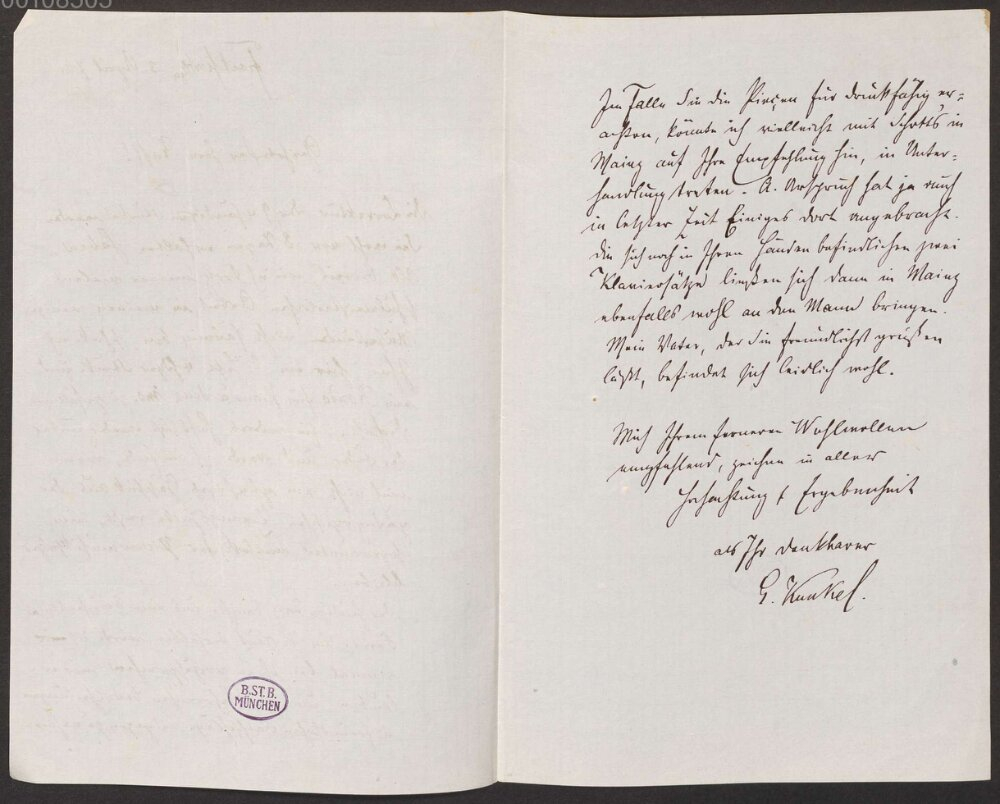 00108505
Im Falle Sie die Piecen für druckfähig er-
achten, könnte ich vielleicht mit Schotts in
Mainz auf Ihre Empfehlung hin, in Unter-
handlung treten. A. Urspruch hat ja auch
in letzter Zeit Einiges dort angebracht.
Die sich noch in Ihren Händen befindlichen zwei
Klaviersätze ließen sich dann in Mainz
ebenfalls wohl an den Mann bringen.
Mein Vater, der Sie freundlichst grüßen
läßt, befindet sich leidlich wohl.
Mich Ihrem ferneren Wohlwollen
empfehlend, zeichne in aller
Hochachtung & Ergebenheit
als Ihr dankbarer
G. Kunkel.
B.ST.B.
MÜNCHEN